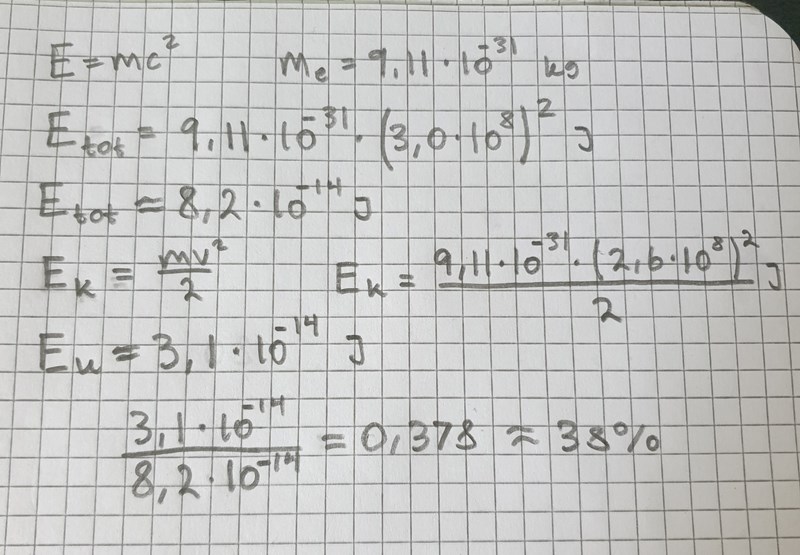 E = mc² mₑ = 9,11·10⁻³¹ kg
E_tot = 9,11·10⁻³¹·(3,0·10⁸)² J
E_tot ≈ 8,2·10⁻¹⁴ J
E_k = mv²/2 E_k = 9,11·10⁻³¹·(2,6·10⁸)²/2 J
E_k = 3,1·10⁻¹⁴ J
3,1·10⁻¹⁴/8,2·10⁻¹⁴ = 0,378 ≈ 38%